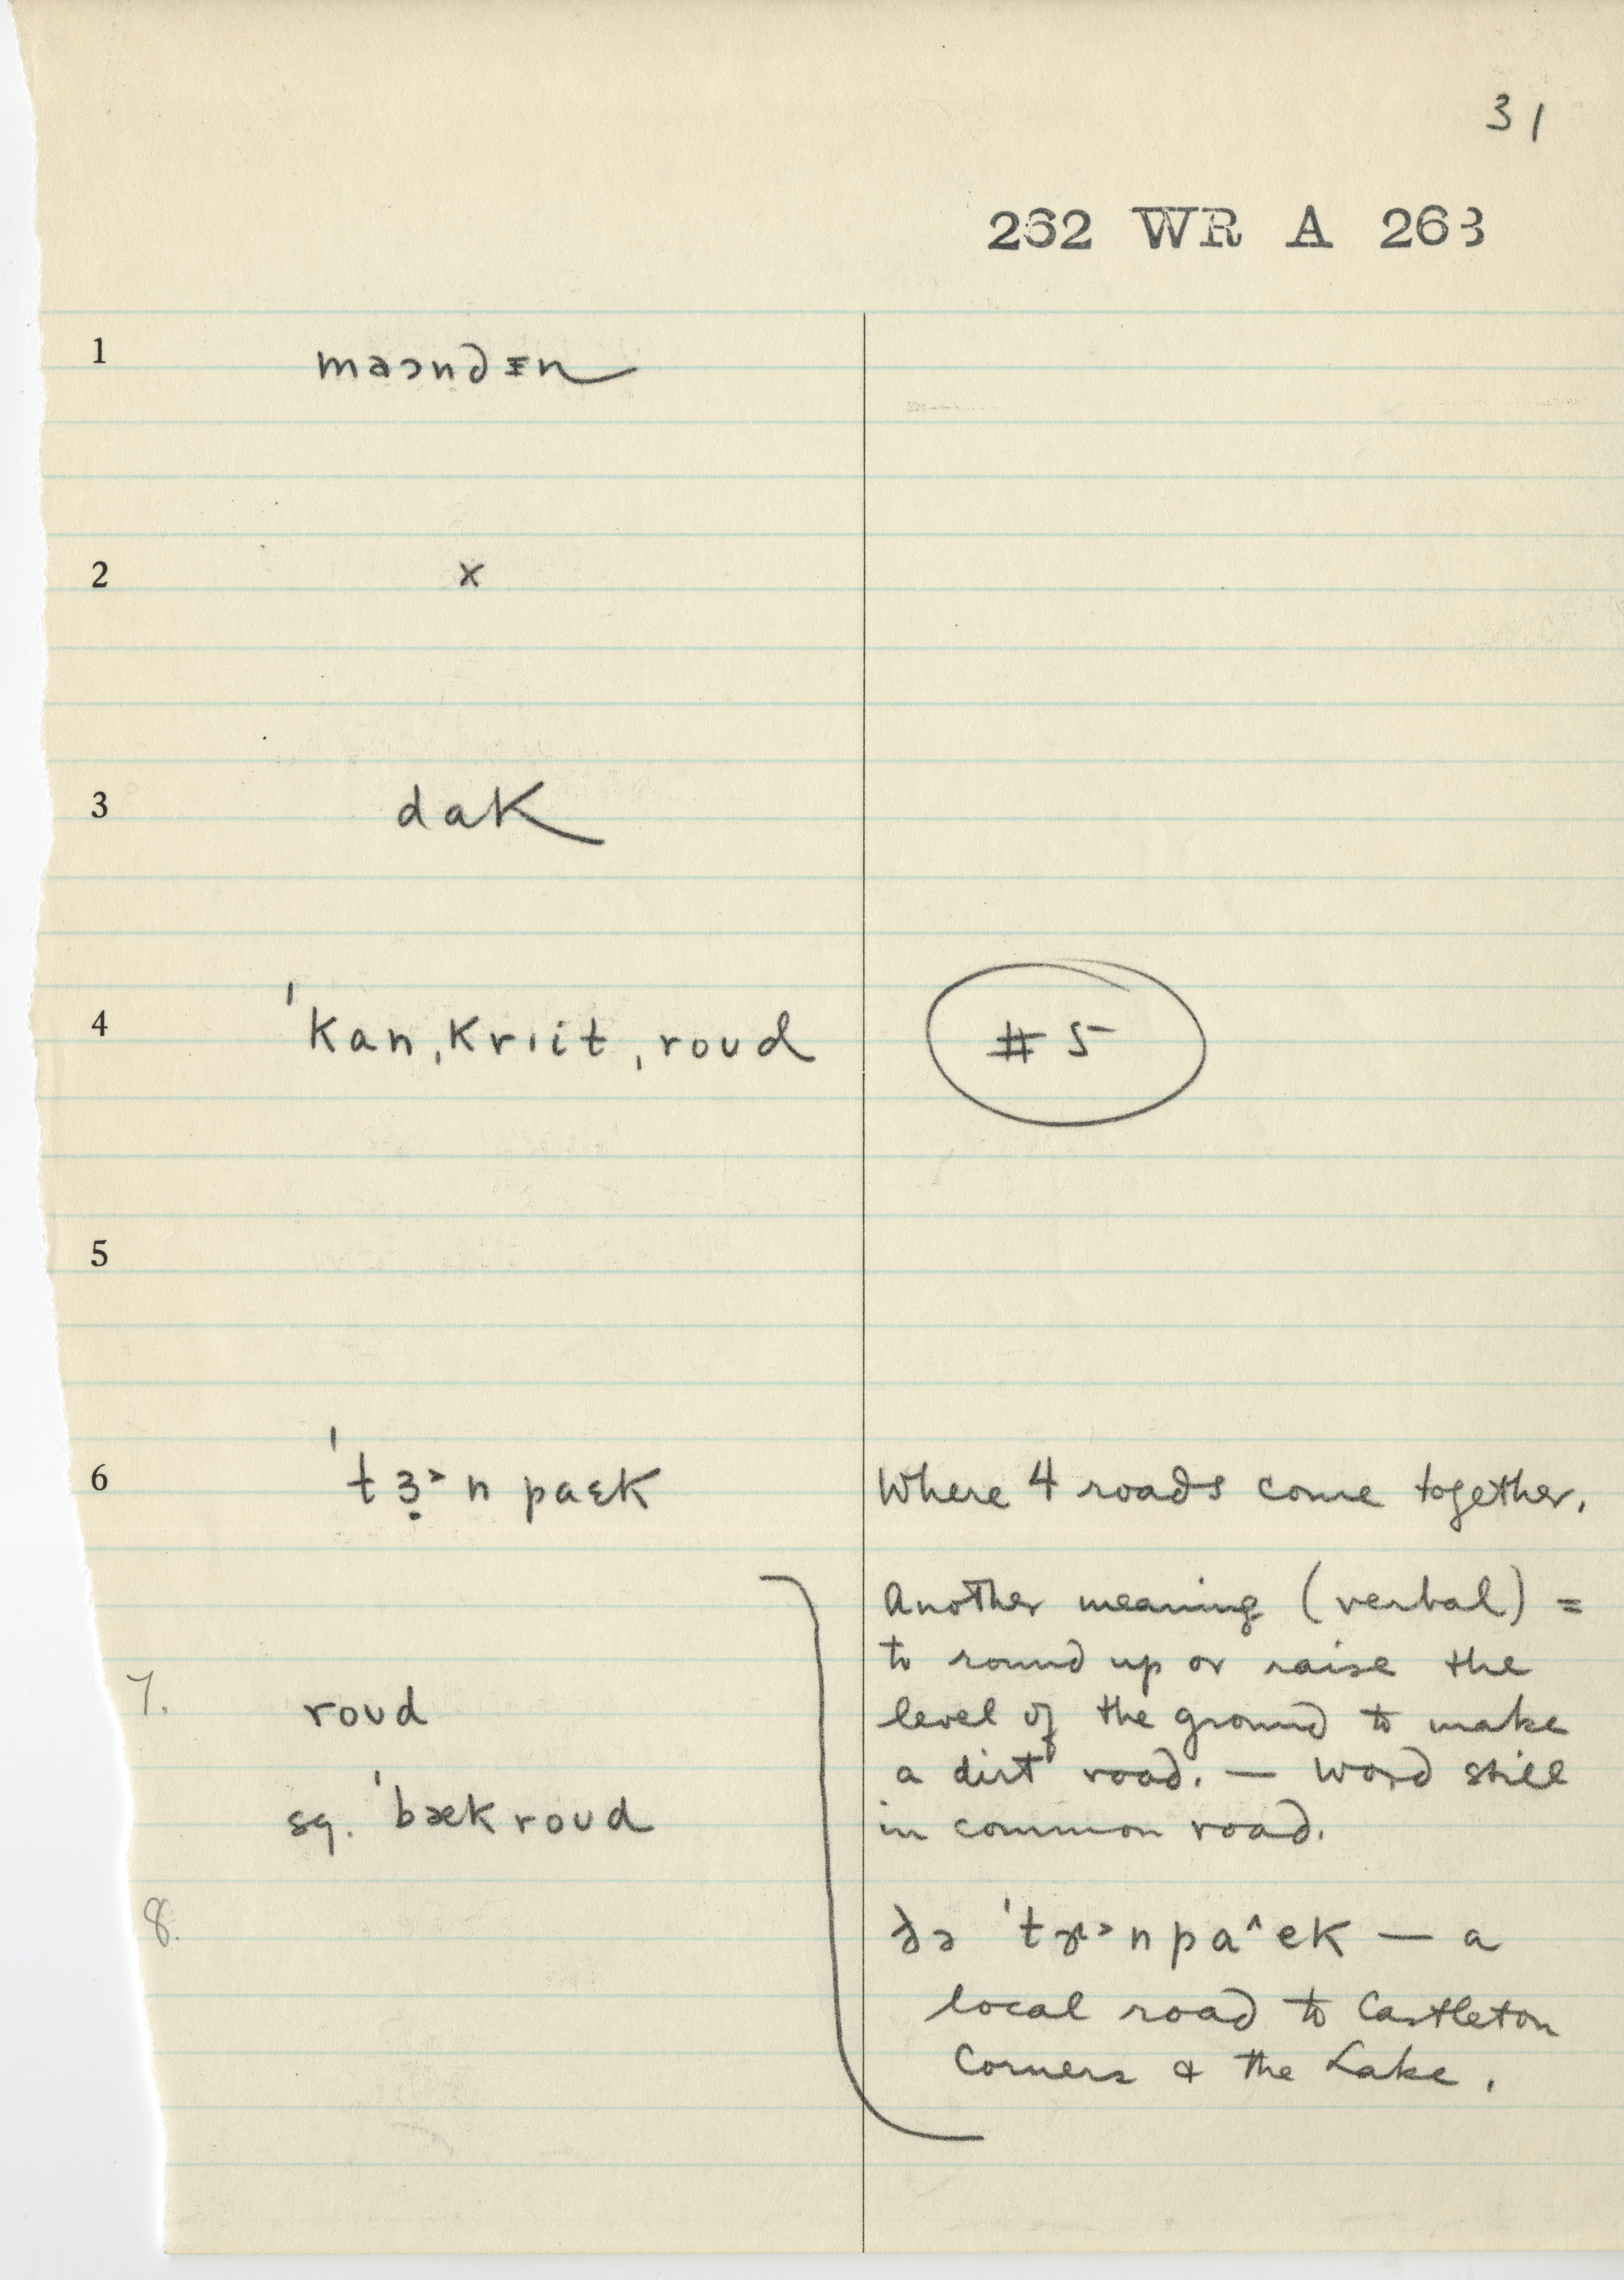 31
262 WR A 263
1 maɔndᵻn
2 x
3 dak
4 ˈkanˌkrɪitˌroud #5
5
6 ˈtɜ̣˃npaɛk Where 4 roads come together.
Another meaning (verbal) =
to round up or raise the
level of the ground to make
7. roud
a dirt road. — Word still
sq. ˈbækroud
in common road.
8.
ðə ˈtɚ˃npa^ek — a
local road to Castleton
Corners & the Lake.